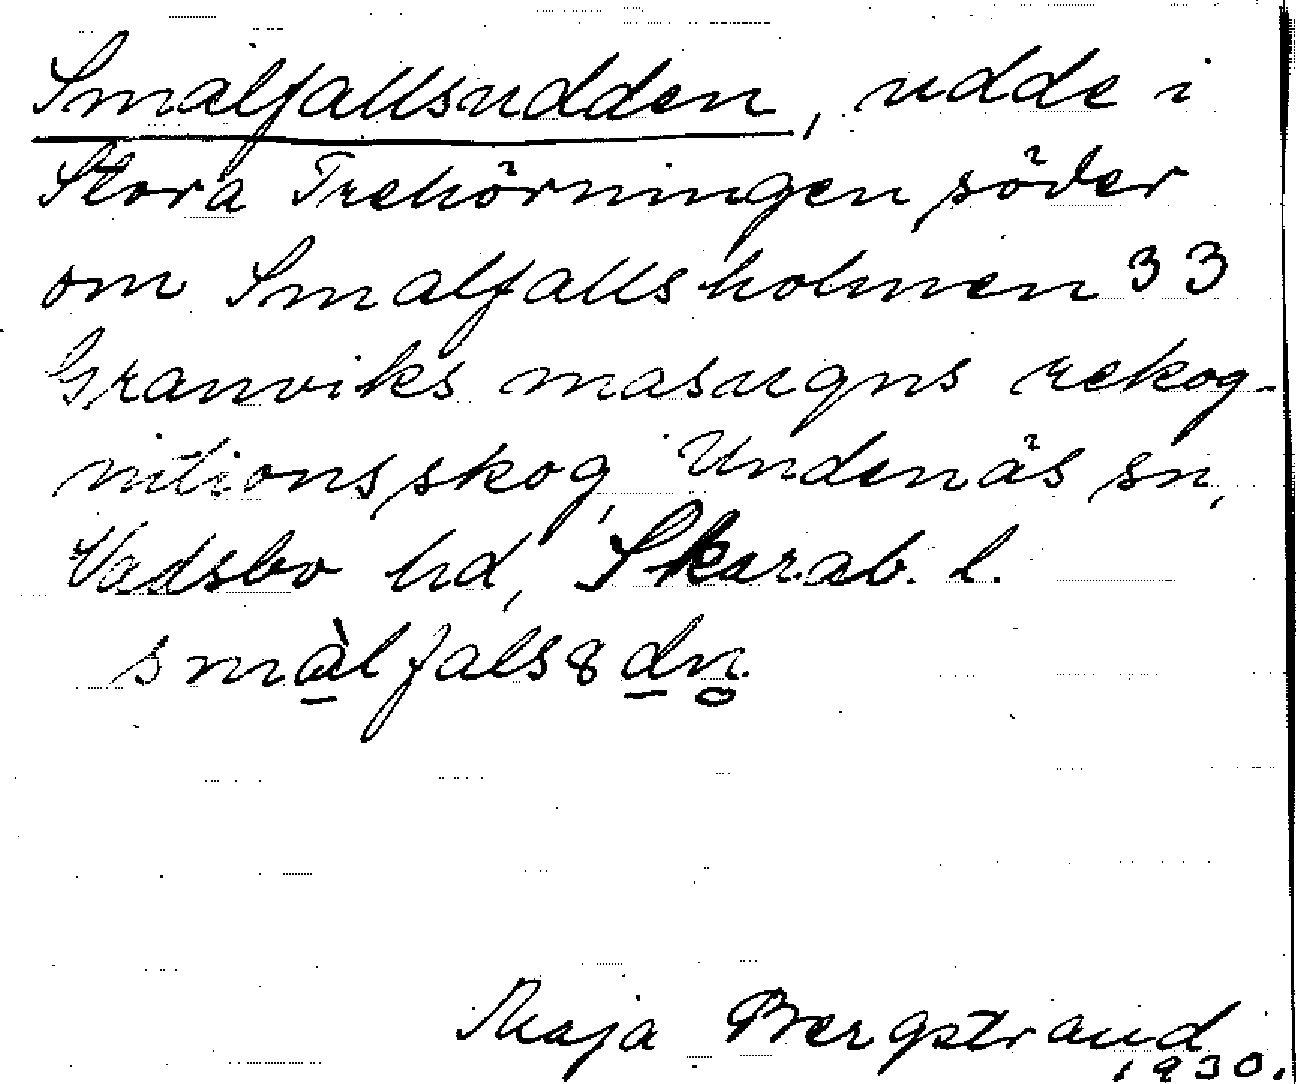 Smalfallsudden, udde i
Stora Trehörningen söder
om Smalfallsholmen 33
Granviks masugns rekog-
nitionsskog, Undenäs sn,
Vadsbo hd, Skarab. l.
smàlfals8dn.
Maja Bergstrand
1930.